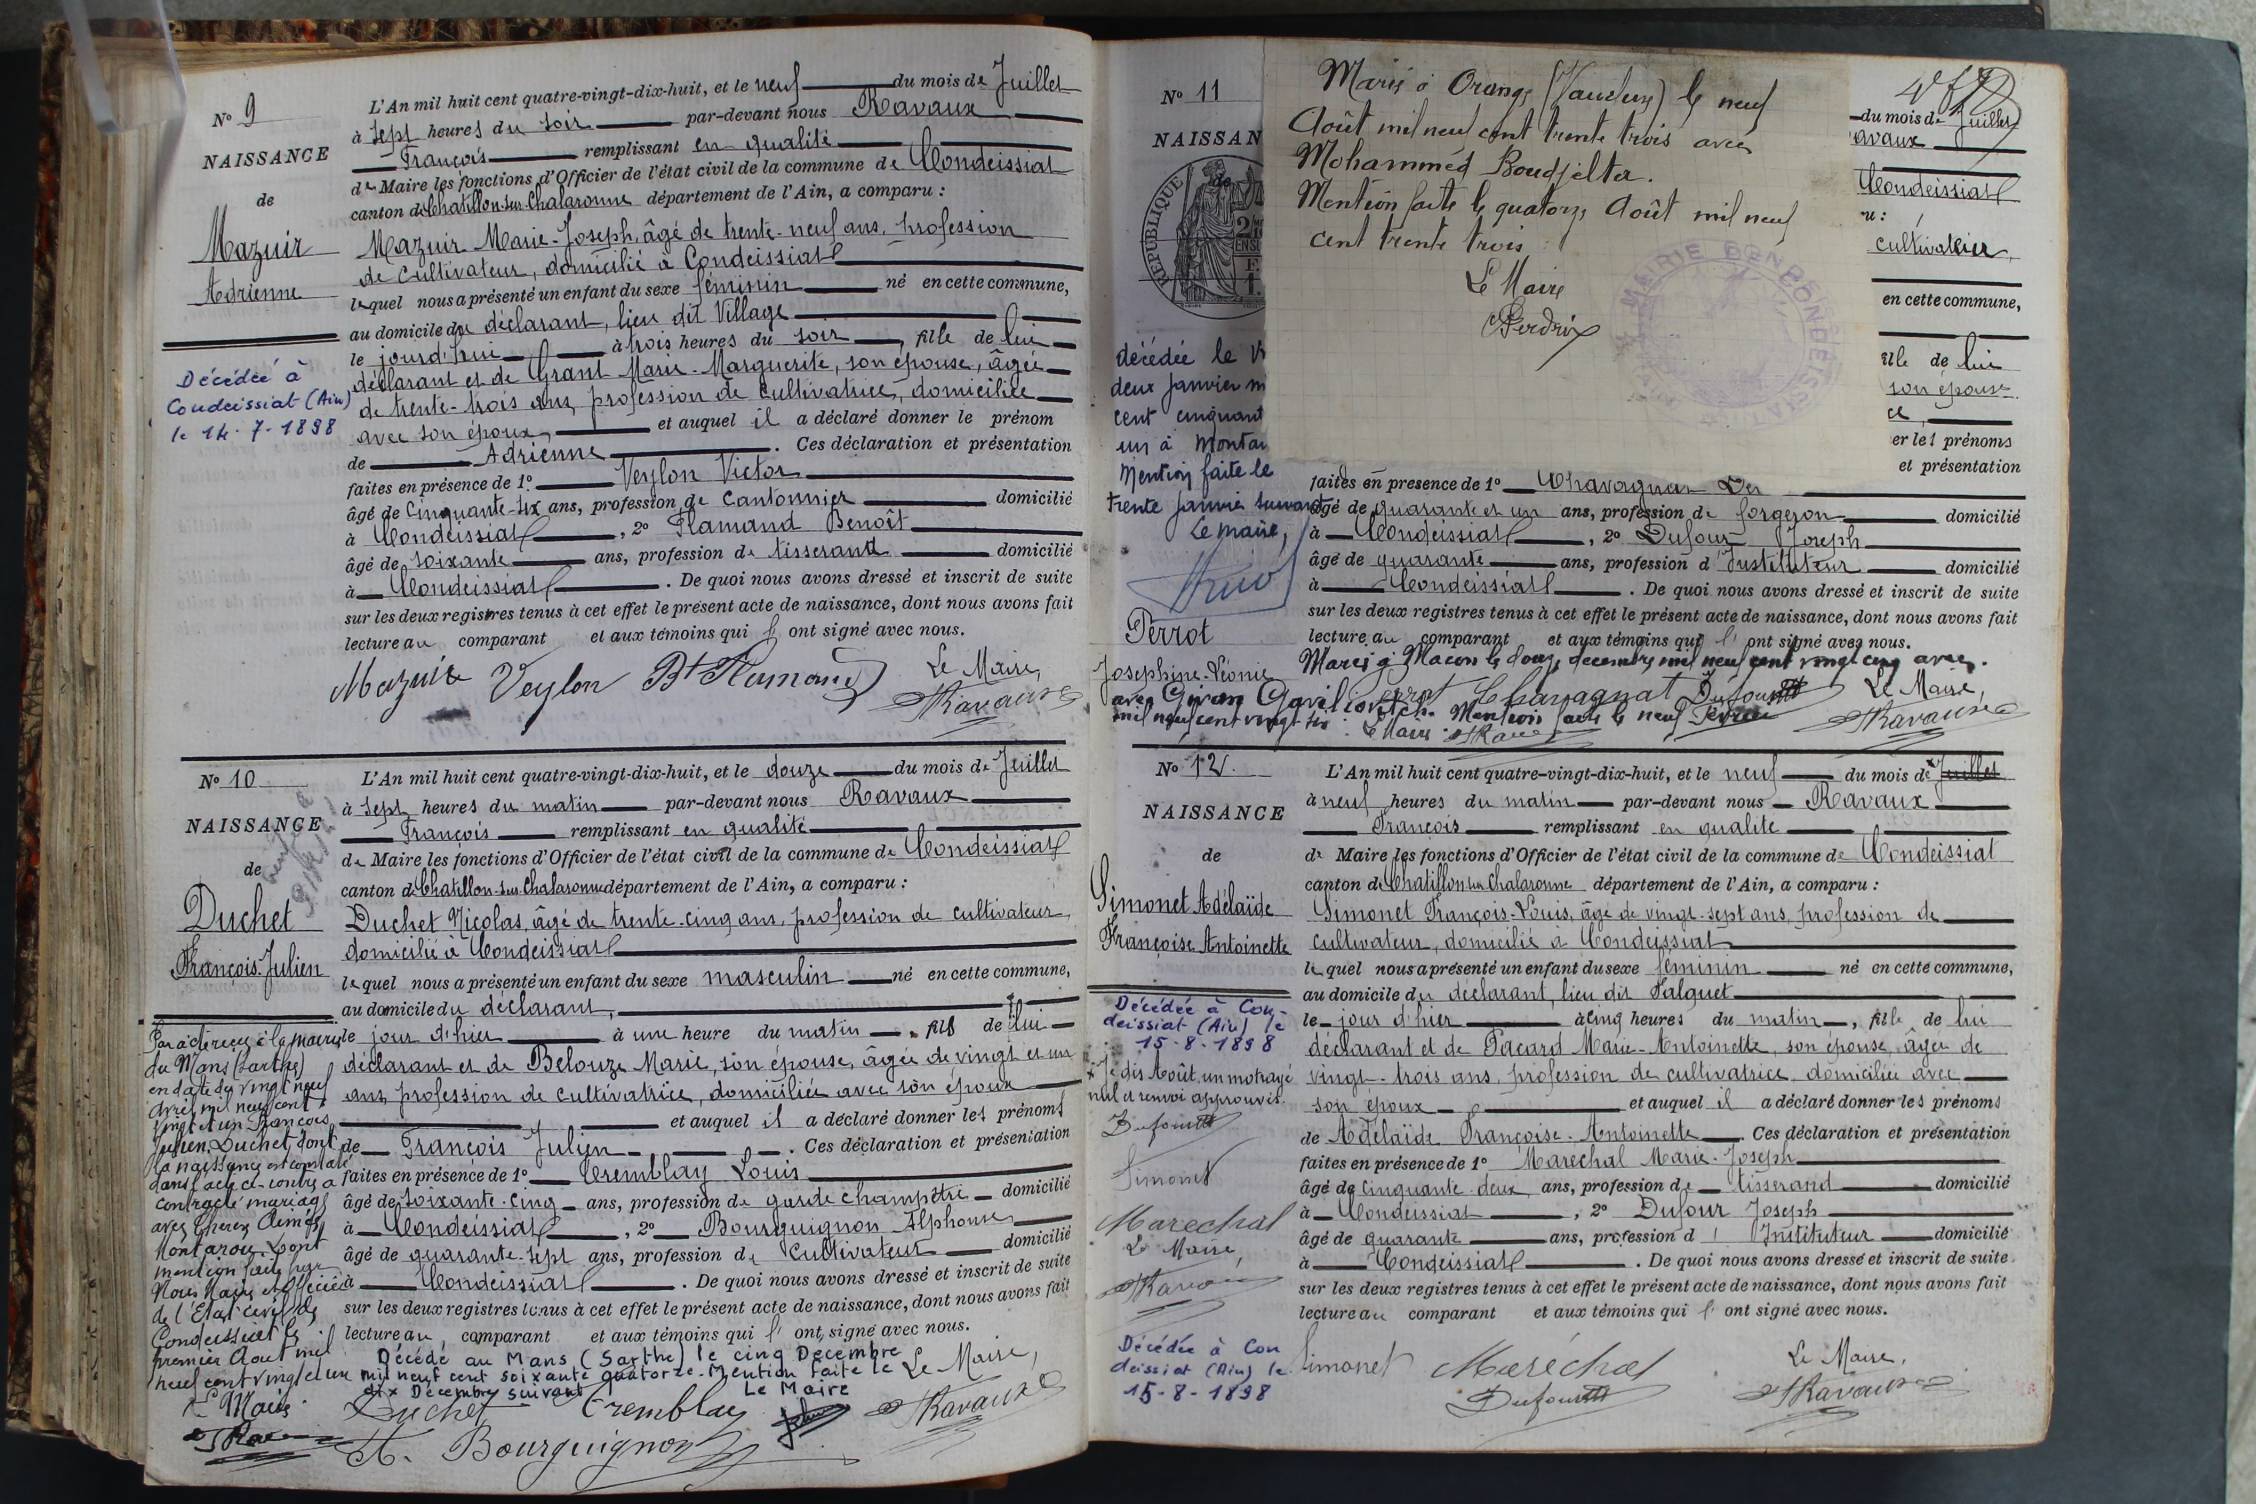 No 9
NAISSANCE
de
Mazuir
Adrienne
Décédée à
Condeissiat (Ain)
le 14-7-1898
L'An mil huit cent quatre-vingt-dix-huit, et le neuf du mois de Juillet
à sept heures du soir par-devant nous Ravaux
François remplissant en qualité
de Maire les fonctions d'Officier de l'état civil de la commune de Condeissiat
canton de Chatillon-sur-Chalaronne département de l'Ain, a comparu :
Mazuir Marie-Joseph, âgé de trente-neuf ans, profession
de cultivateur, domicilié à Condeissiat
lequel nous a présenté un enfant du sexe féminin né en cette commune,
au domicile du déclarant, lieu dit Village
le jourd'hui à trois heures du soir, fille de lui
déclarant et de Grant Marie-Marguerite, son épouse, âgée
de trente-trois ans, profession de cultivatrice, domiciliée
avec son époux, et auquel il a déclaré donner le prénom
de Adrienne. Ces déclaration et présentation
faites en présence de 1° Veylon Victor
âgé de cinquante-six ans, profession de cantonnier domicilié
à Condeissiat, 2° Flamand Benoît
âgé de soixante ans, profession de tisserand domicilié
à Condeissiat. De quoi nous avons dressé et inscrit de suite
sur les deux registres tenus à cet effet le présent acte de naissance, dont nous avons fait
lecture au comparant et aux témoins qui l'ont signé avec nous.
Mazuir Veylon Bt Flamand Le Maire,
Ravaux
No 10
NAISSANCE
de
Duchet
François-Julien
L'An mil huit cent quatre-vingt-dix-huit, et le douze du mois de Juillet
à sept heures du matin par-devant nous Ravaux
François remplissant en qualité
de Maire les fonctions d'Officier de l'état civil de la commune de Condeissiat
canton de Chatillon-sur-Chalaronne département de l'Ain, a comparu :
Duchet Nicolas, âgé de trente-cinq ans, profession de cultivateur,
domicilié à Condeissiat
lequel nous a présenté un enfant du sexe masculin né en cette commune,
au domicile du déclarant,
le jour d'hier à une heure du matin, fils de lui
déclarant et de Belouze Marie, son épouse, âgée de vingt et un
ans, profession de cultivatrice, domiciliée avec son époux
et auquel il a déclaré donner les prénoms
de François Julien. Ces déclaration et présentation
faites en présence de 1° Tremblay Louis
âgé de soixante-cinq ans, profession de garde champêtre domicilié
à Condeissiat, 2° Bourguignon Alphonse
âgé de quarante-sept ans, profession de cultivateur domicilié
à Condeissiat. De quoi nous avons dressé et inscrit de suite
sur les deux registres tenus à cet effet le présent acte de naissance, dont nous avons fait
lecture au comparant et aux témoins qui l'ont signé avec nous.
Par acte reçu à la mairie
du Mans (Sarthe)
en date du vingt neuf
avril mil neuf cent
vingt et un François
Julien Duchet dont
la naissance est constatée
dans l'acte ci-contre a
contracté mariage
avec
mention faite par
Nous Maire et Officier
de l'Etat civil de
Condeissiat le
premier Août mil
neuf cent vingt et un
Le Maire
Décédé au Mans (Sarthe) le cinq Décembre
mil neuf cent soixante quatorze. Mention faite le
dix Décembre suivant Le Maire
Le Maire,
Duchet Tremblay Ravaux
A. Bourguignon
No 11
NAISSAN
RÉPUBLIQUE
décédée le
deux janvier
cent cinquant
un à
Mention faite le
trente janvier suivant
Le maire,
Perrot
Josephine-Léonie
Marié à Orange (Vaucluse) le neuf
Août mil neuf cent trente trois avec
Mohammed Boudjelta.
Mention faite le quatorze Août mil neuf
cent trente trois
Le Maire
Perdrix
MAIRIE DE CONDEISSIAT
du mois de Juillet
avaux
Condeissiat
u :
cultivateur,
en cette commune,
lle de lui
son épouse
ce,
er les prénoms
et présentation
faites en présence de 1° Chavagnat
âgé de quarante et un ans, profession de forgeron domicilié
à Condeissiat, 2° Dufour Joseph
âgé de quarante ans, profession d'Instituteur domicilié
à Condeissiat. De quoi nous avons dressé et inscrit de suite
sur les deux registres tenus à cet effet le présent acte de naissance, dont nous avons fait
lecture au comparant et aux témoins qui l'ont signé avec nous.
Marié à Macon le douze décembre mil neuf cent vingt cinq avec
avec Givan Gavrilovitch. Mention faite le neuf Février
mil neuf cent vingt six. Le Maire
Perrot Chavagnat Dufour Le Maire,
Ravaux
No 12
NAISSANCE
de
Simonet Adélaïde
Françoise Antoinette
Décédée à Con-
deissiat (Ain) le
15-8-1898
x dix Août, un mot rayé
nul et renvoi approuvés.
Dufour
Simonet
Marechal
Le Maire,
Ravaux
Décédée à Con
deissiat (Ain) le
15-8-1898
L'An mil huit cent quatre-vingt-dix-huit, et le neuf du mois de x Juillet
à neuf heures du matin par-devant nous Ravaux
François remplissant en qualité
de Maire les fonctions d'Officier de l'état civil de la commune de Condeissiat
canton de Chatillon-sur-Chalaronne département de l'Ain, a comparu :
Simonet François-Louis, âgé de vingt-sept ans, profession de
cultivateur, domicilié à Condeissiat
lequel nous a présenté un enfant du sexe féminin né en cette commune,
au domicile du déclarant, lieu dit
le jour d'hier à cinq heures du matin, fille de lui
déclarant et de Pacard Marie-Antoinette, son épouse, âgée de
vingt-trois ans, profession de cultivatrice, domiciliée avec
son époux et auquel il a déclaré donner les prénoms
de Adélaïde Françoise-Antoinette. Ces déclaration et présentation
faites en présence de 1° Maréchal Marie-Joseph
âgé de cinquante-deux ans, profession de tisserand domicilié
à Condeissiat, 2° Dufour Joseph
âgé de quarante ans, profession d'Instituteur domicilié
à Condeissiat. De quoi nous avons dressé et inscrit de suite
sur les deux registres tenus à cet effet le présent acte de naissance, dont nous avons fait
lecture au comparant et aux témoins qui l'ont signé avec nous.
Simonet Maréchal Le Maire,
Dufour Ravaux